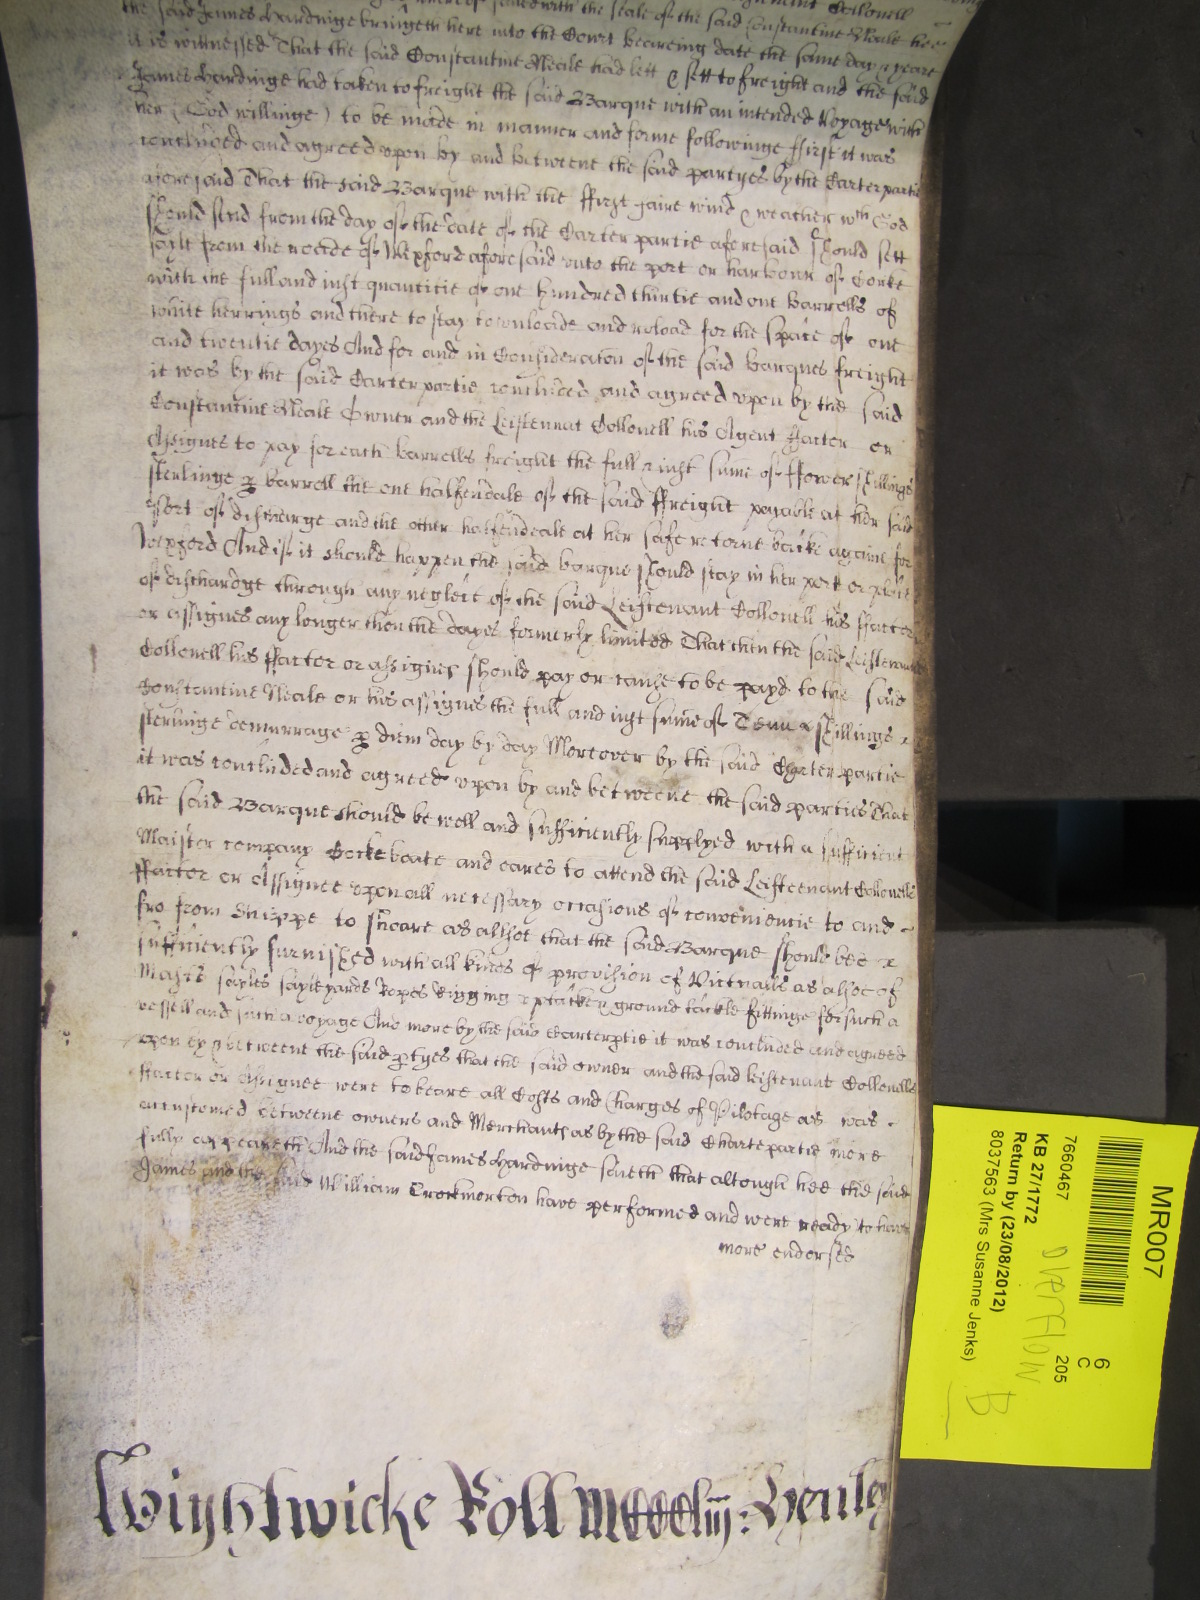 sealed with the seale of the said Constantine Neale hee
the said James Hardinge bringeth here into the Court beareing date the same day & yeare
it is wittnessed That the said Constantine Neale had lett & sett to freight and the said
James Hardinge had taken to freight the said Barque with an intended Voyage with
her (God willinge) to be made in manner and forme followinge ffirst it was
concluded and agreed upon by and betweene the said partyes by the Carterpartie
aforesaid That the said Barque with the ffirst faire wind & weather wth God
should send from the day of the date of the Carterpartie aforesaid should sett
sayle from the of Wexford aforesaid unto the port or harbour of Corke
with the full and just quantitie of one hundred thirtie and one barrells of
white herrings and there to stay to unloade and reload for the space of one
and twentie dayes And for and in Consideraton of the said barques freight
it was by the said Carterpartie concluded and agreed upon by the said
Constantine Neale Owner and the Leiftennat Collonell his Agent ffactor or
Assignes to pay for each barrells freight the full & just sume of ffower shillings
sterlinge p barrell the one halfendale of the said ffreight payable at her said
Port of discharge and the other halfendeale at her safe retorne backe againe for
Wexford And if it should happen the said barque should stay in her port or place
of dischardge through any neglect of the said Leiftenant Collonell his ffactor
or assignes any longer then the dayes formerly limited That then the said Leiftenant
Collonell his ffactor or assignes should pay or cause to be payd to the said
Constantine Neale or his assignes the full and just sume of Tenn shillings
sterlinge demurrage p diem day by day Moreover by the said Charterpartie
it was concluded and agreed upon by and betweene the said parties That
the said Barque should be well and sufficiently supplyed with a sufficient
Maister company Cockeboate and oares to attend the said Leifteenant Collonells
ffactor or Assignee upon all necessary occasions of conveniencie to and
fro from Shippe to shoare as allsoe that the said Barque should bee
sufficiently furnished with all kindes of provision of Victualls as allsoe of
Masts sayles sayleyards Ropes Rigging ground tackle fittinge for such a
vessell and such a voyage And more by the said Carterptie it was concluded and agreed
upon by & betweene the said ptyes that the said owner and the said Leiftenant Collonells
ffactor or Assignee were to beare all Costs and Charges of Pilotage as was
accustomed betweene owners and Merchants as by the said Chartepartie more
fully appeareth And the said James Hardinge saieth that altough hee the said
James and the said William Crockmorton have performed and were ready to have
more endorsed
Wightwicke Roll MCCCCliij: Henley
MR007
6
C
205
7660467
KB 27/1772
Return by (23/08/2012)
8037563 (Mrs Susanne Jenks)
Overflow
B